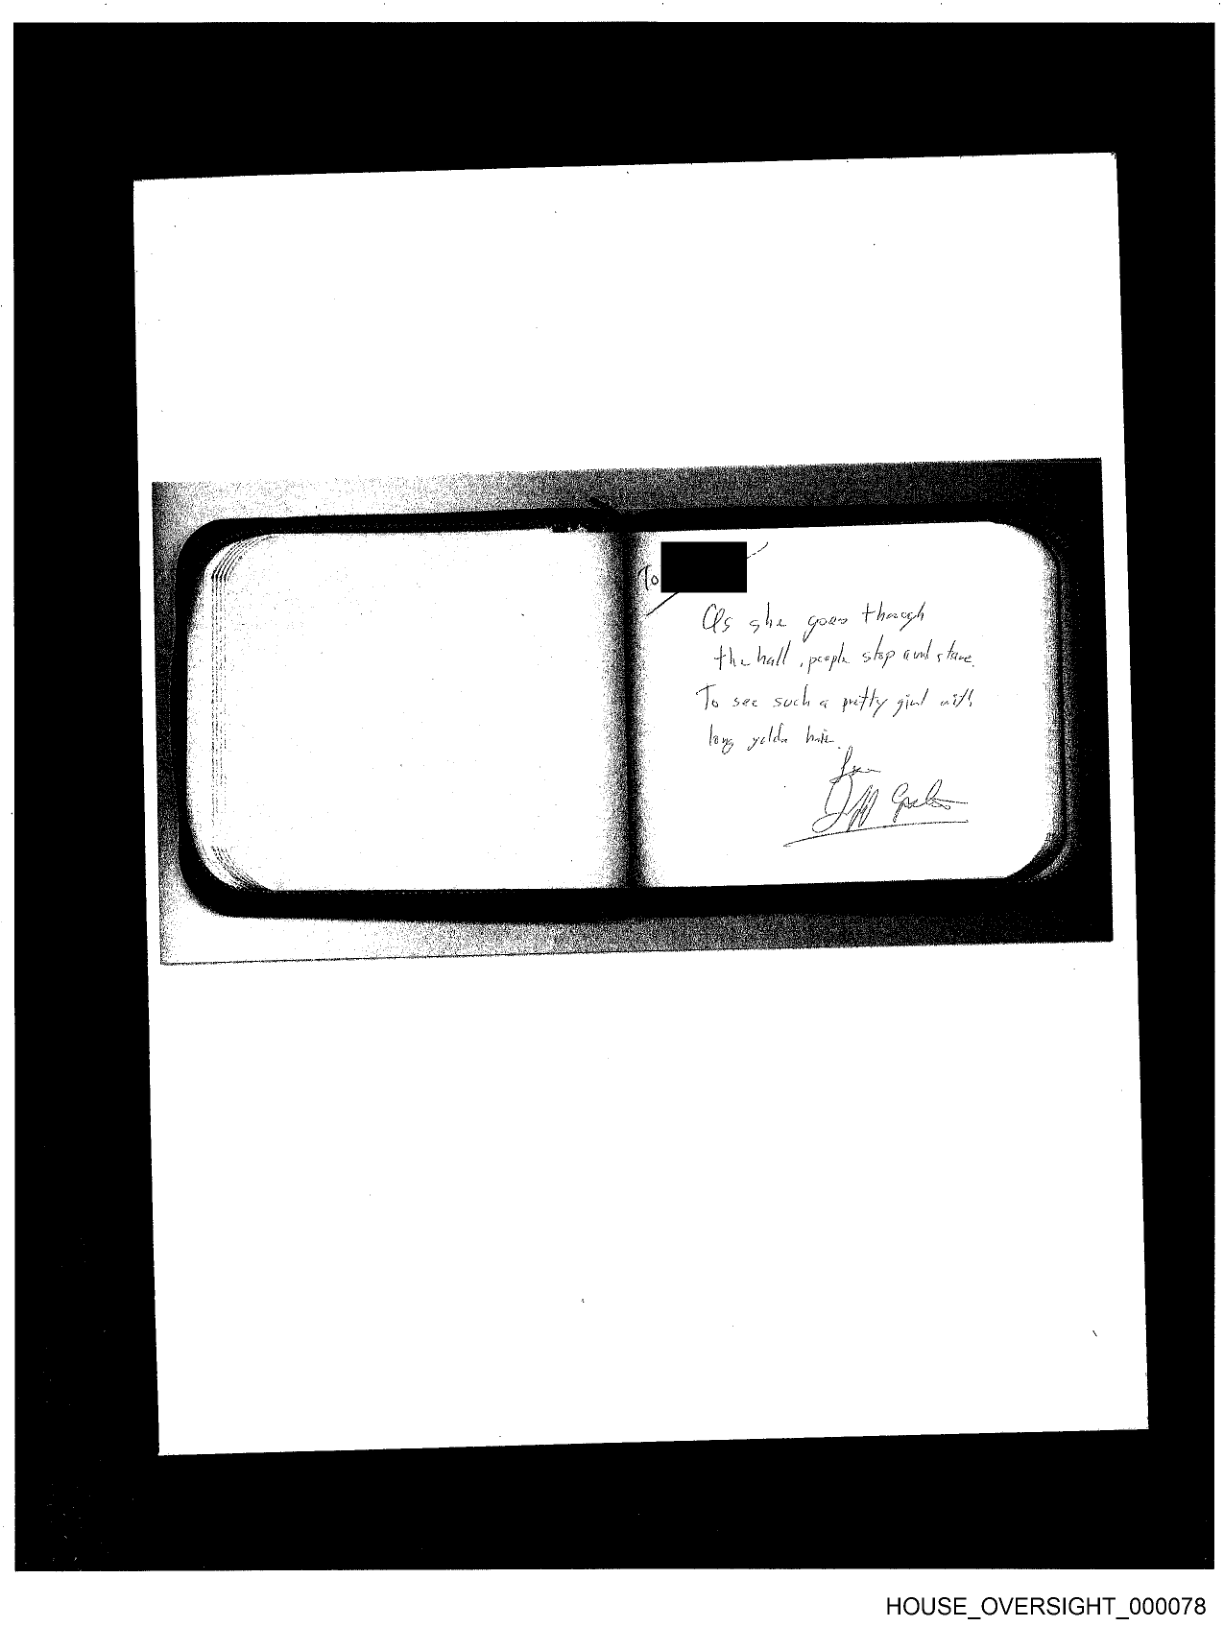 To
As she goes through
the hall, people stop and stare.
To see such a pretty girl with
long golden hair.
from
Jeff Epstein
HOUSE_OVERSIGHT_000078